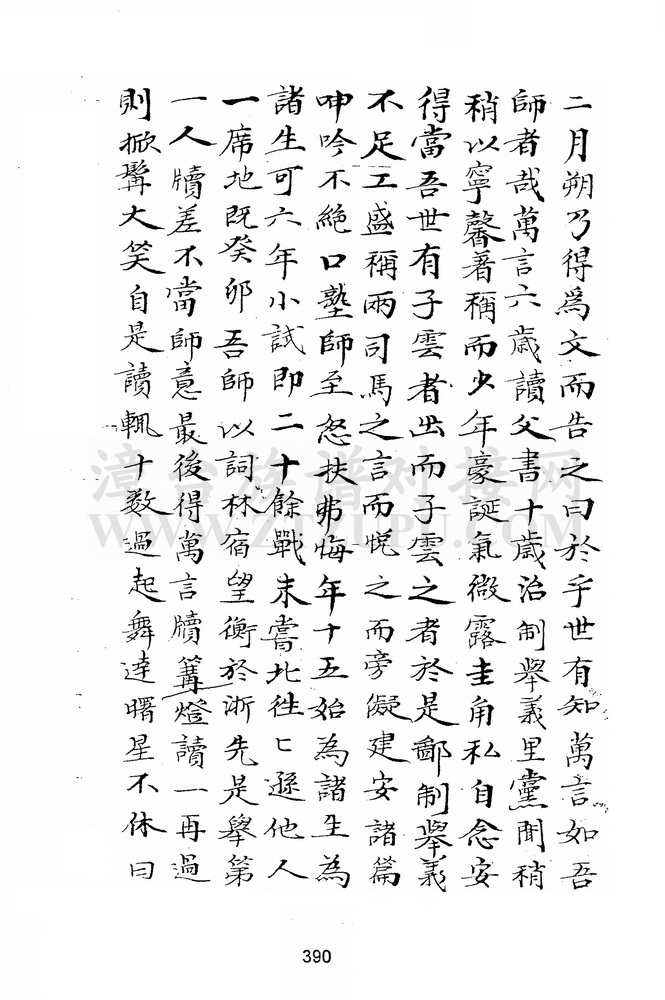 二月朔乃得爲文而告之曰於乎世有知萬言如吾
師者哉萬言六歲讀父書十歲治制舉義里黨聞稍
稍以寧馨著稱而少年豪誕氣微露圭角私自念安
得當吾世有子雲者出而子雲之者於是鄙制舉義
不足工盛稱兩司馬之言而悅之而旁儗建安諸篇
呻吟不絕口塾師至怒扶弗悔年十五始為諸生為
諸生可六年小試即二十餘戰未嘗北往亡遜他人
一席地既癸卯吾師以詞林宿望衡於浙先是舉第
一人牘差不當師意最後得萬言牘篝燈讀一再過
則掀髯大笑自是讀輒十数過起舞達曙星不休曰
漳台族谱对接网
WWW.ZTZUPU.COM
390